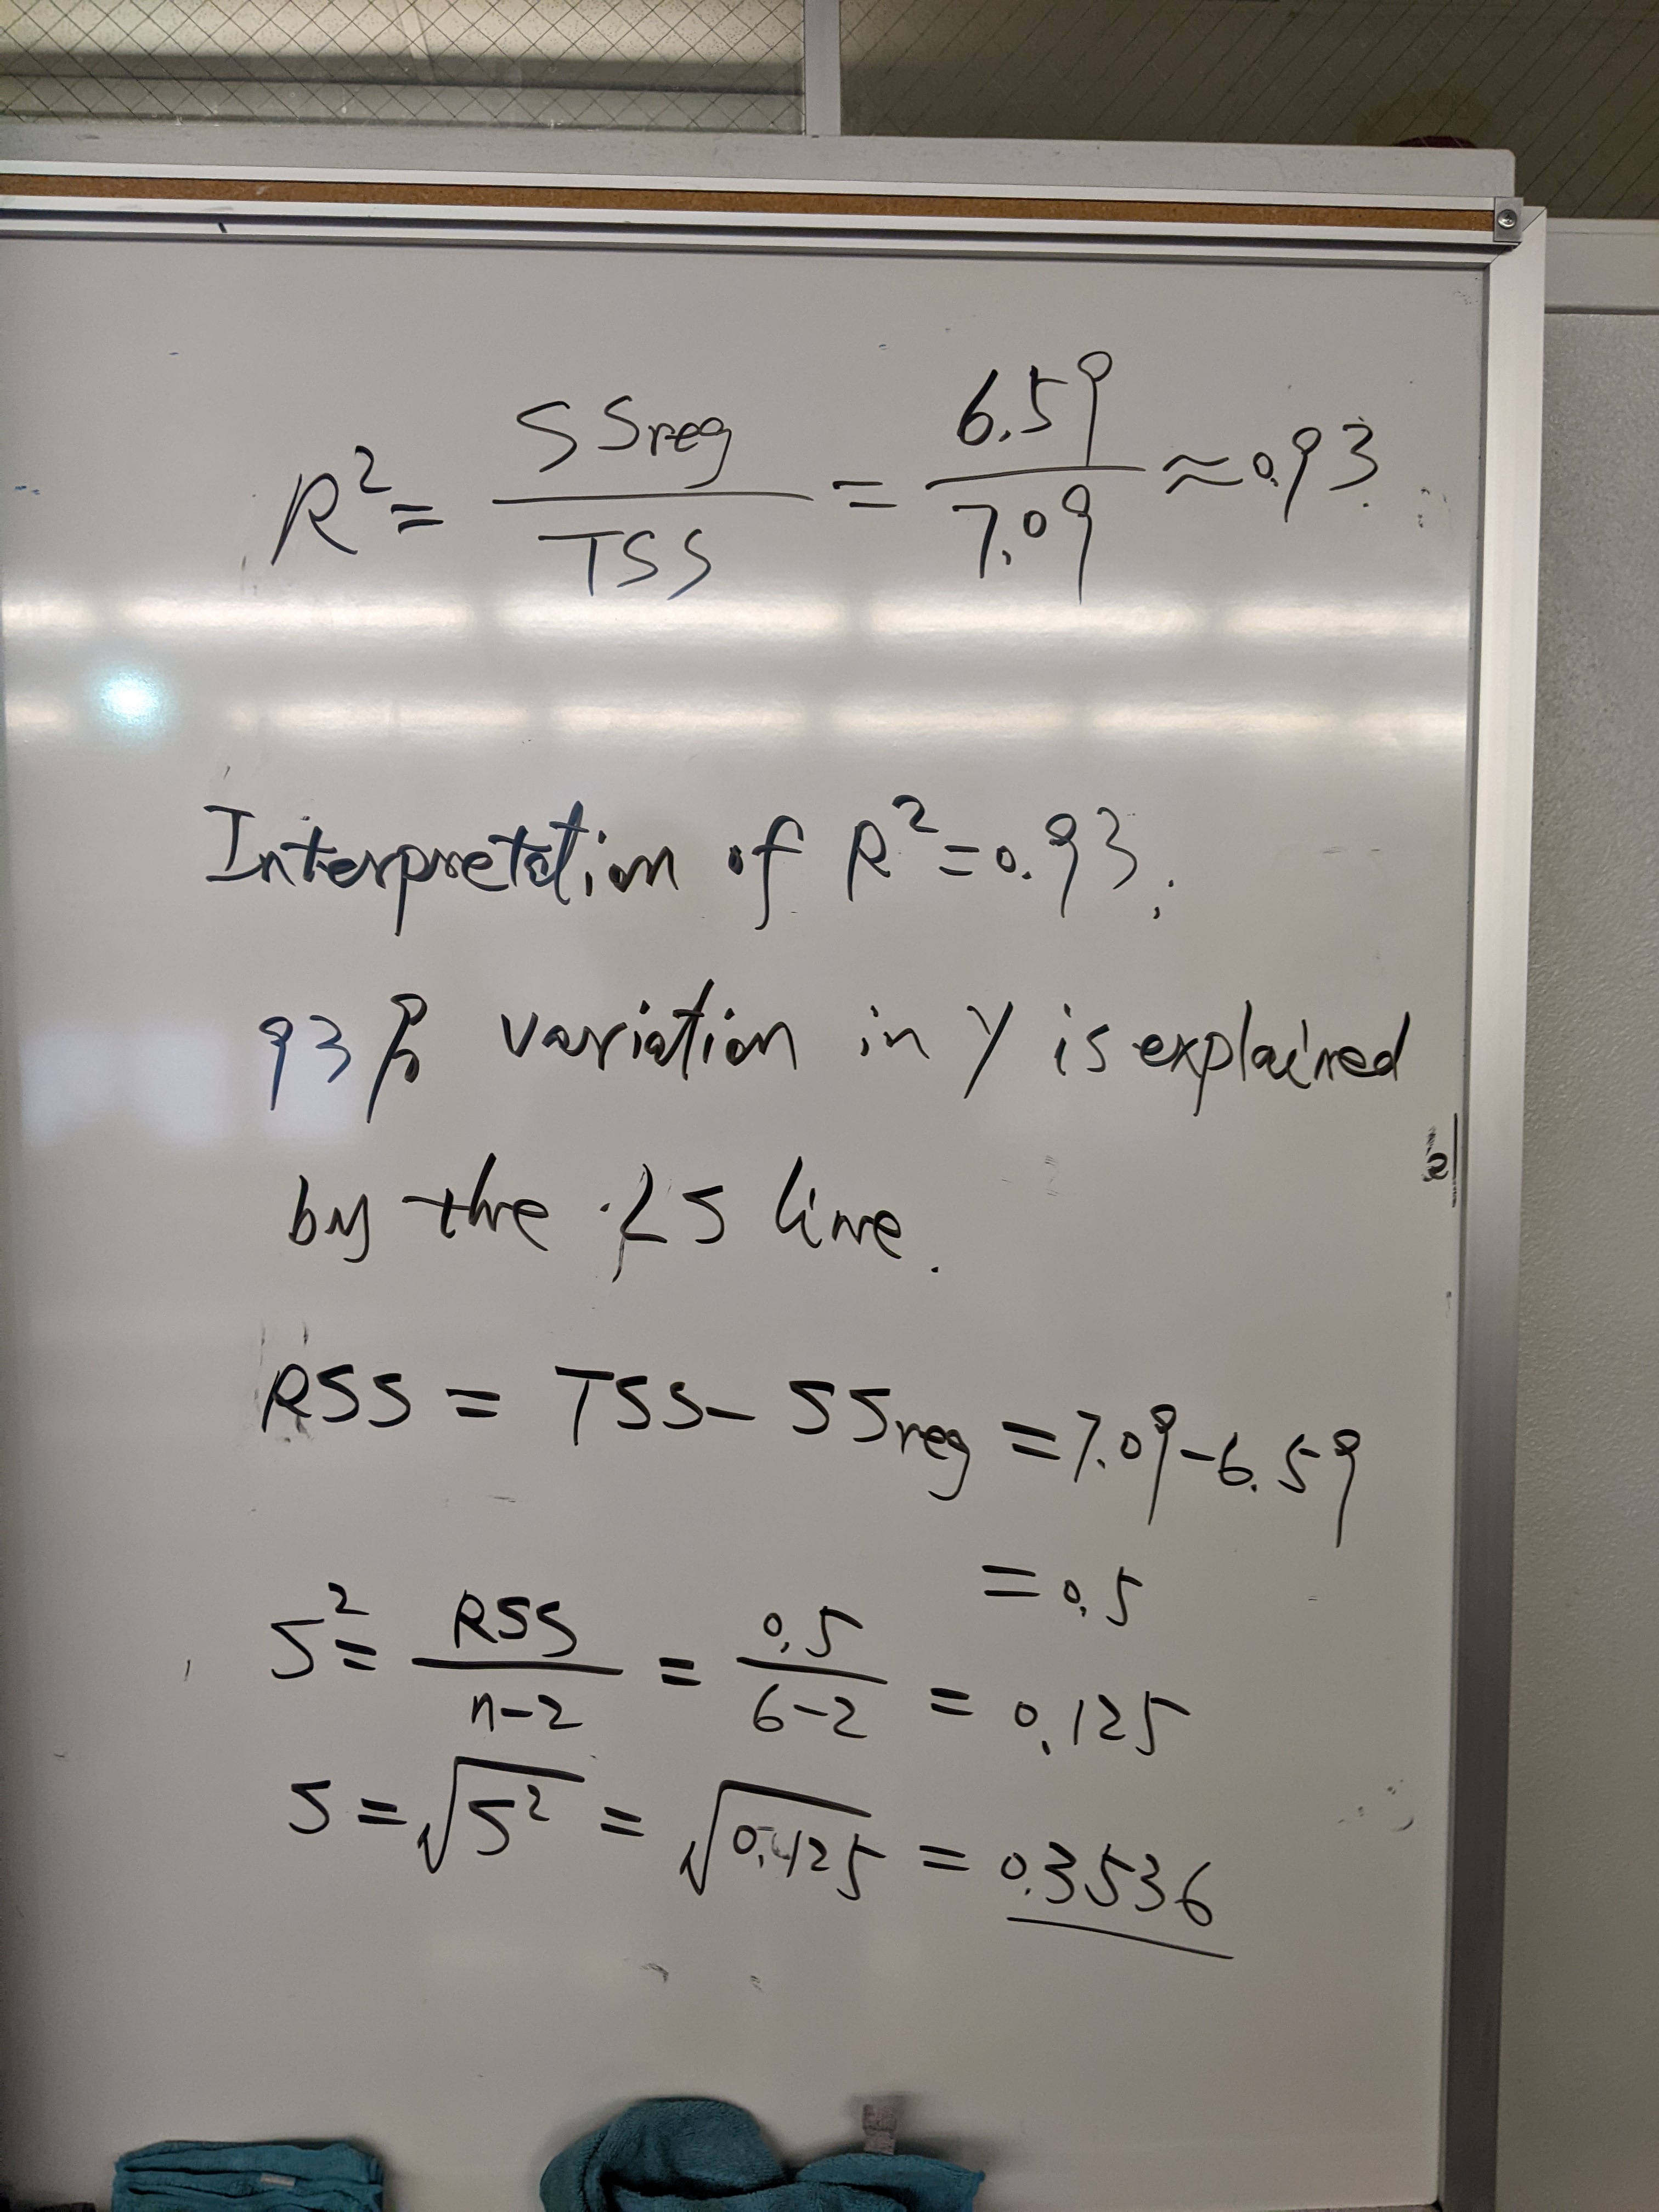 R² = SSreg / TSS = 6.59 / 7.09 ≈ 0.93
Interpretation of R² = 0.93.
93% variation in Y is explained
by the LS line.
RSS = TSS - SSreg = 7.09 - 6.59
= 0.5
S² = RSS / n-2 = 0.5 / 6-2 = 0.125
S = √S² = √0.125 = 0.3536